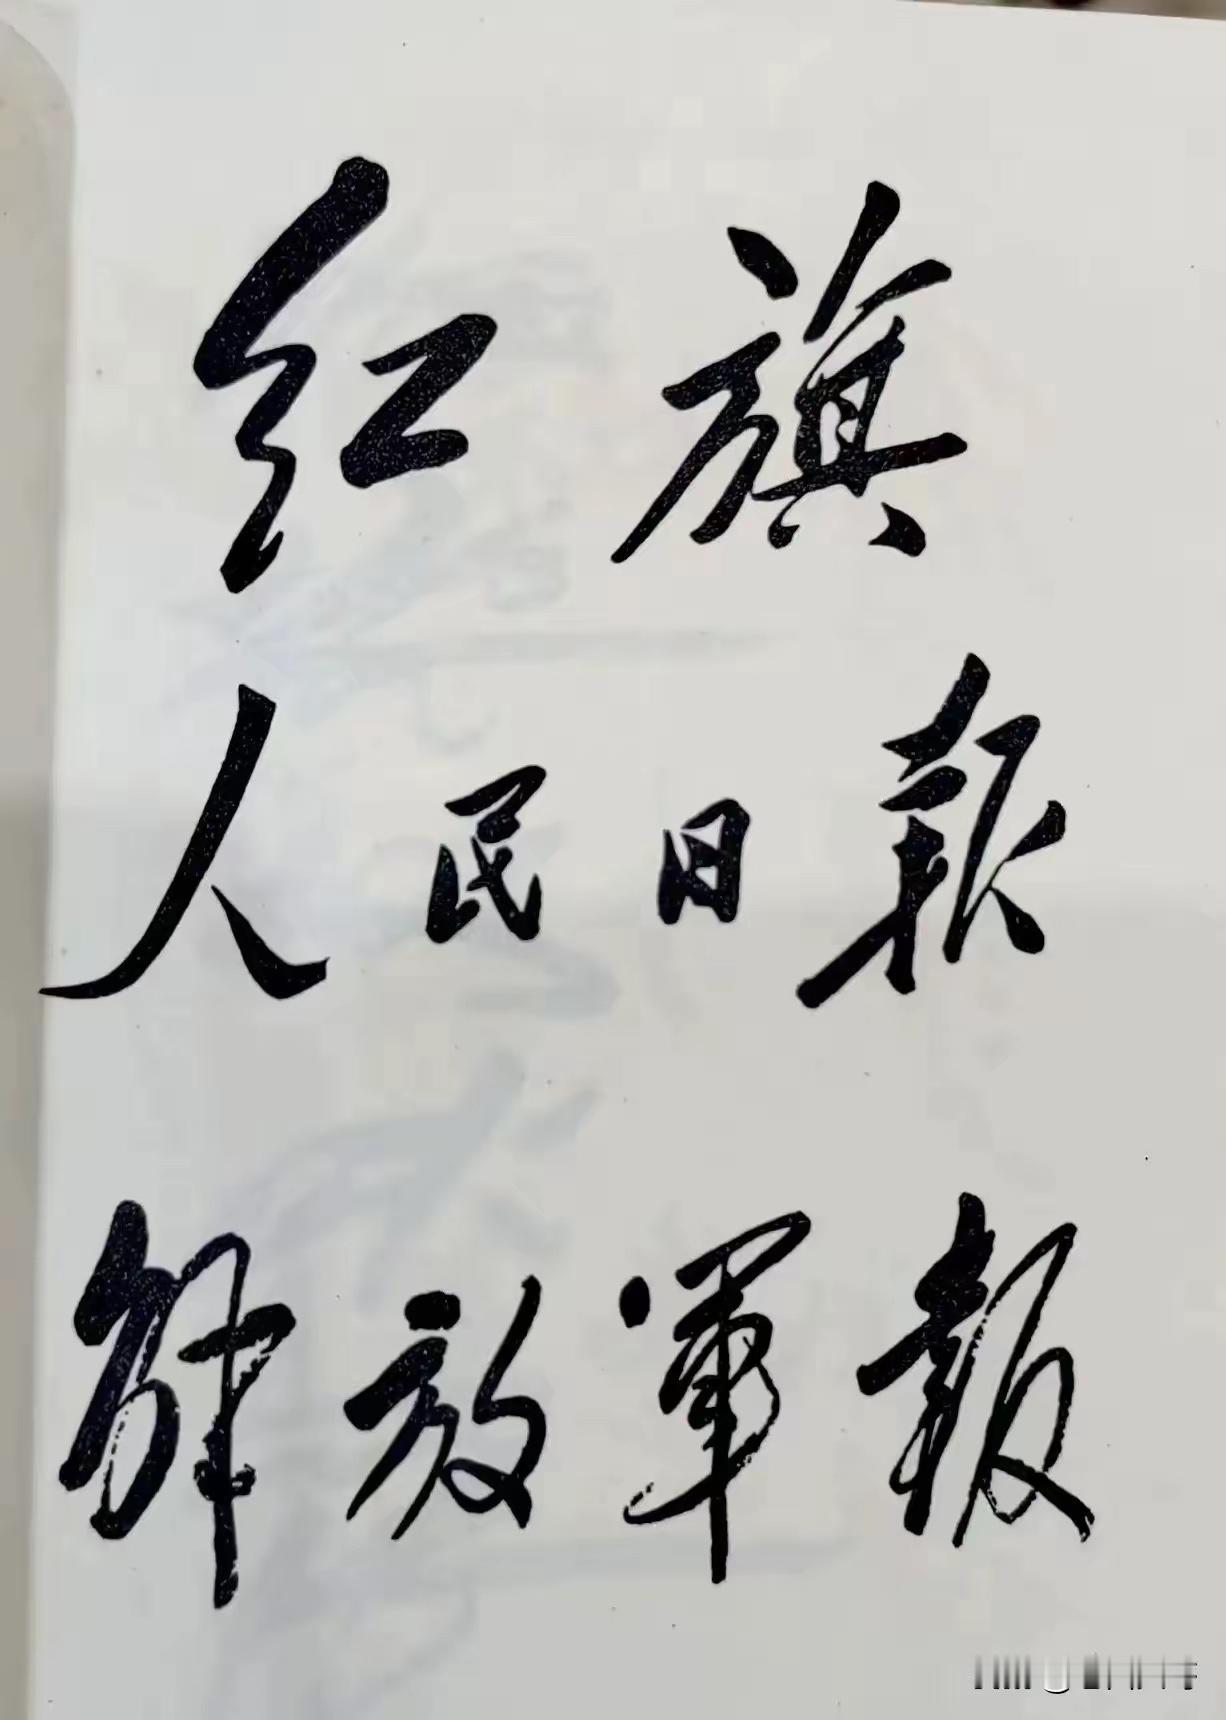 红旗
人民日报
解放軍報